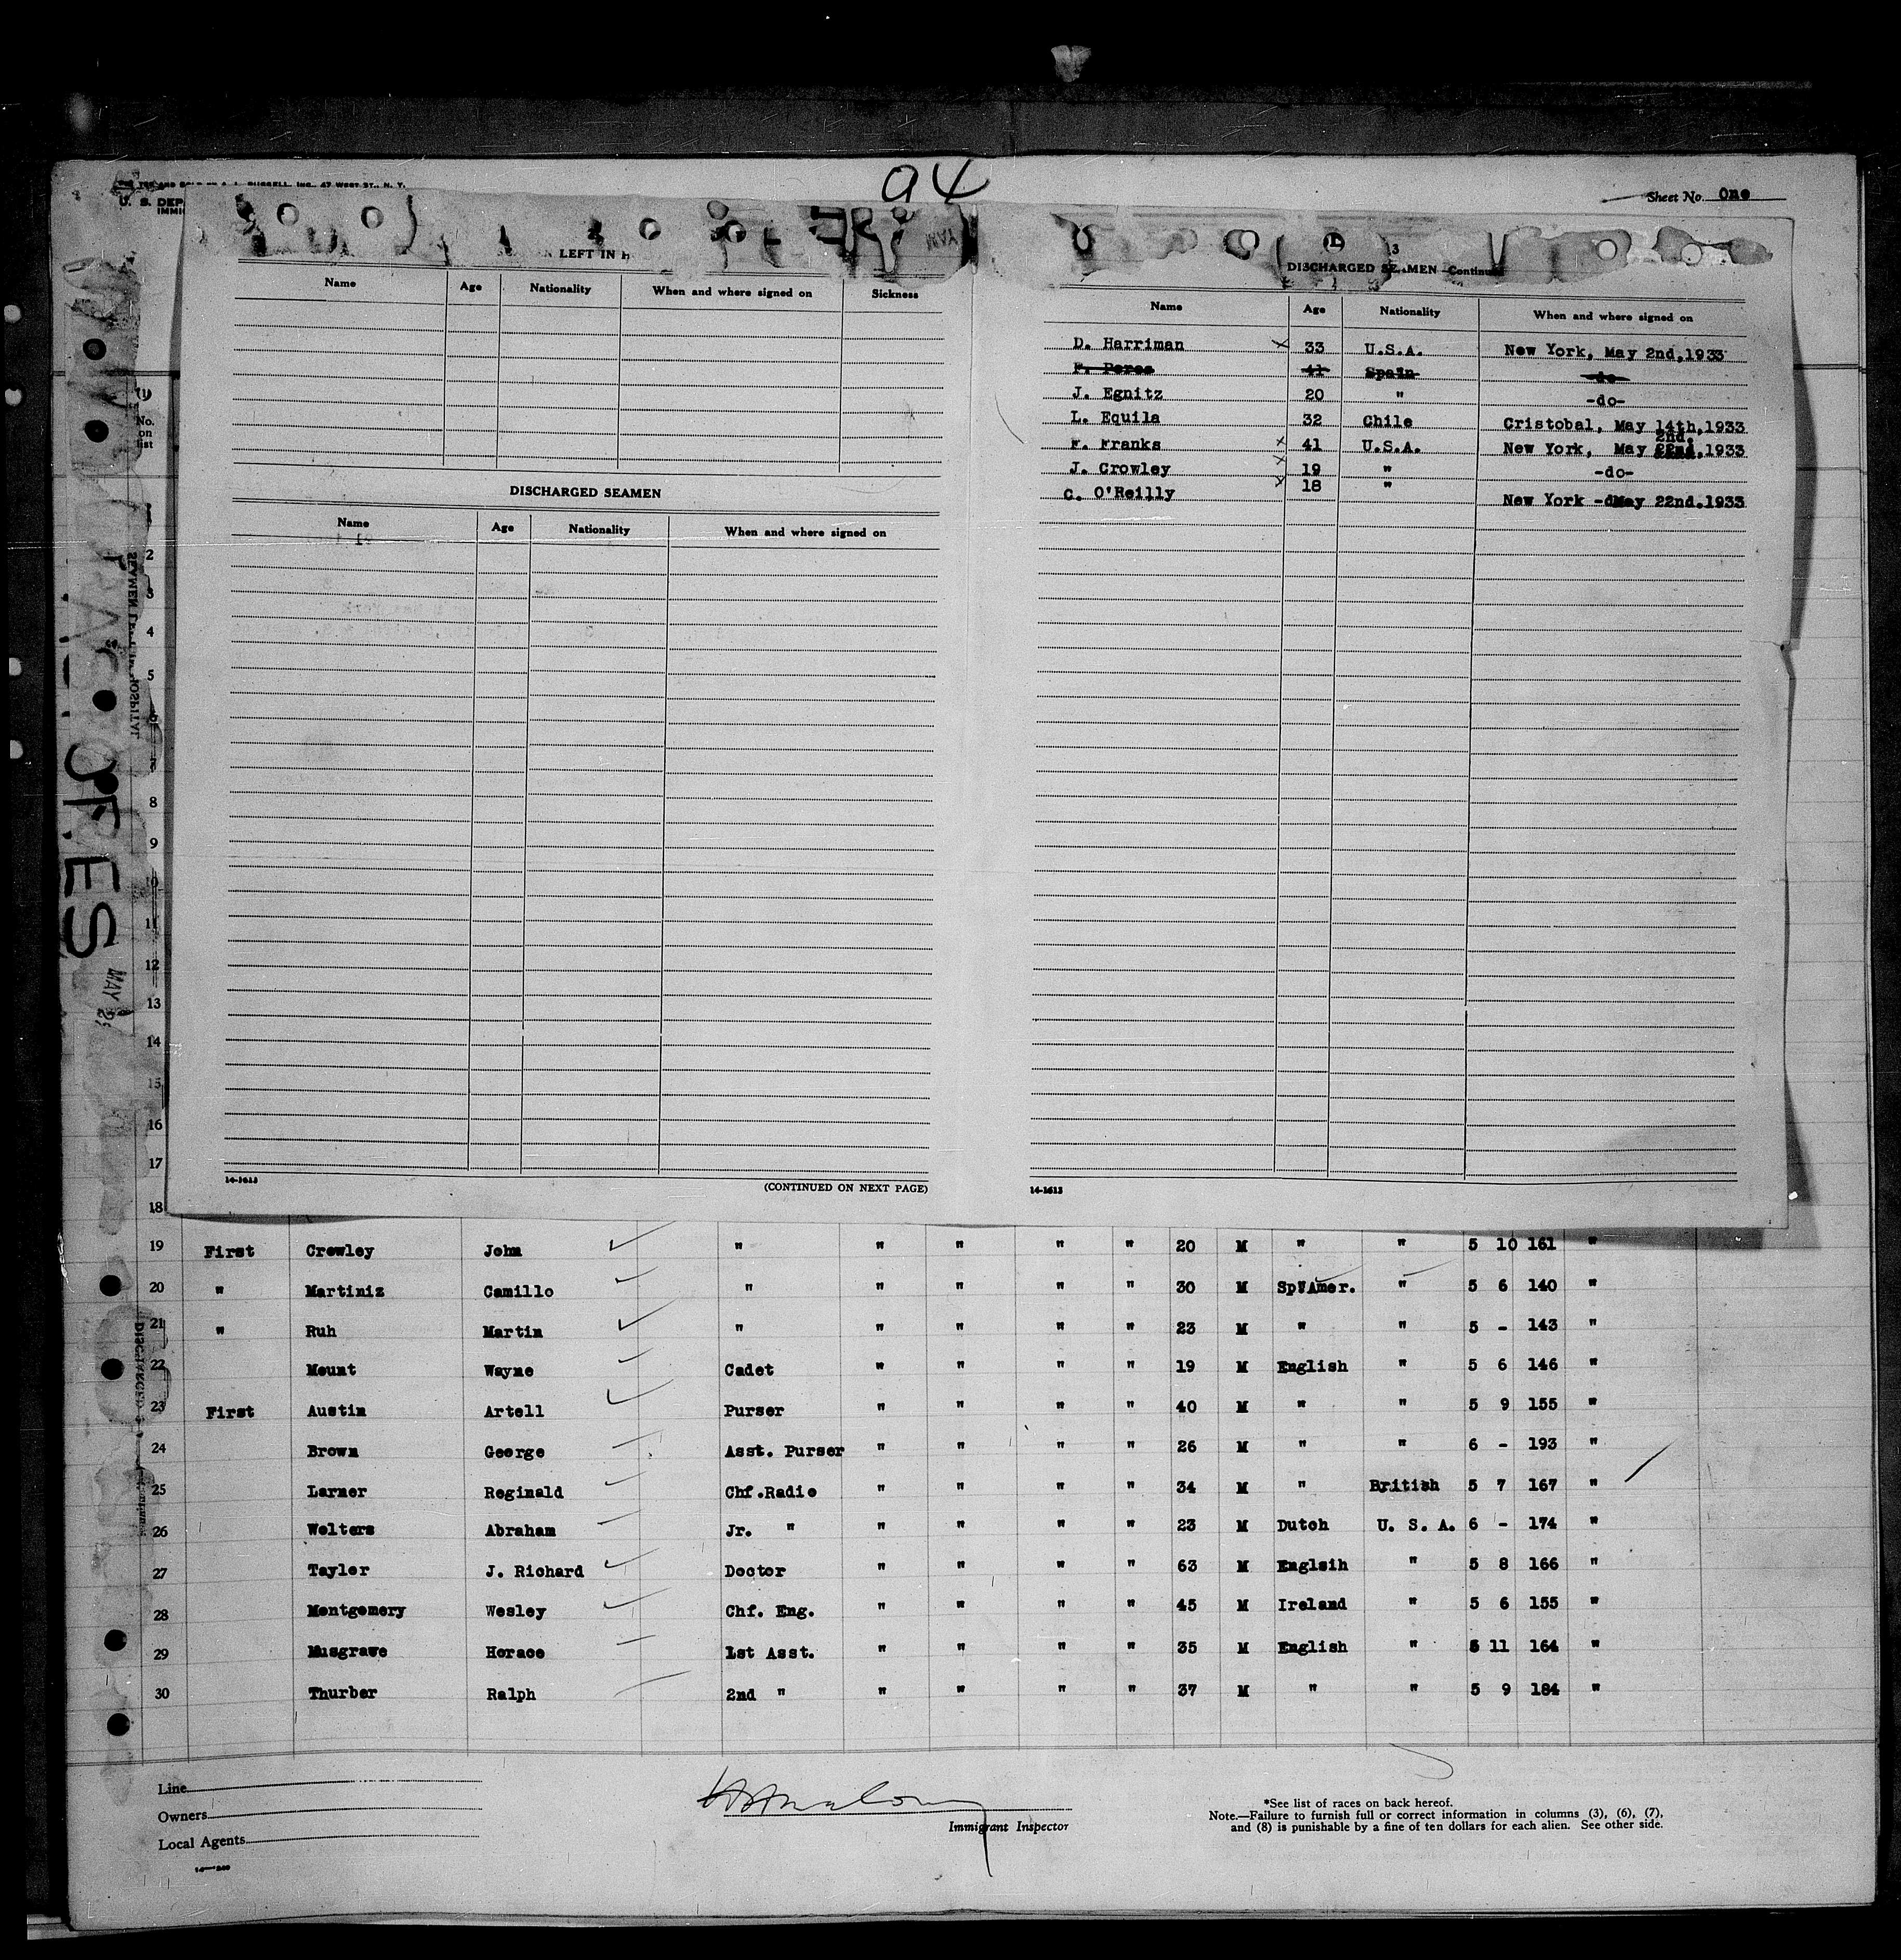 94
Sheet No. One
U. S. DEP
IMMI
LEFT IN H
Name Age Nationality When and where signed on Sickness
DISCHARGED SEAMEN
Name Age Nationality When and where signed on
(CONTINUED ON NEXT PAGE)
14-1613
DISCHARGED SEAMEN—Continued
Name Age Nationality When and where signed on
D. Harriman x 33 U.S.A. New York, May 2nd,1933
F. Perez 41 Spain -do-
J. Egnitz 20 " -do-
L. Equila 32 Chile Cristobal, May 14th,1933
2nd.
F. Franks x 41 U.S.A. New York, May 22nd,1933
J. Crowley x 19 " -do-
C. O'Reilly x 18 " New York -dMay 22nd.1933
14-1613
No.
on
list
2
3
4
5
6
7
8
9
10
11
12
13
14
15
16
17
18
19 First Crowley John " " " " " 20 M " " 5 10 161 "
20 " Martiniz Camillo " " " " " 30 M Sp.Amer. " 5 6 140 "
21 " Ruh Martin " " " " " 23 M " " 5 - 143 "
22 Mount Wayne Cadet " " " " 19 M English " 5 6 146 "
23 First Austin Artell Purser " " " " 40 M " " 5 9 155 "
24 Brown George Asst. Purser " " " " 26 M " " 6 - 193 "
25 Larner Reginald Chf.Radio " " " " 34 M " British 5 7 167 "
26 Wolters Abraham Jr. " " " " " 23 M Dutch U. S. A. 6 - 174 "
27 Tayler J. Richard Doctor " " " " 63 M Englsih " 5 8 166 "
28 Montgomery Wesley Chf. Eng. " " " " 45 M Ireland " 5 6 155 "
29 Musgrave Horace 1st Asst. " " " " 35 M English " 5 11 164 "
30 Thurber Ralph 2nd " " " " " 37 M " " 5 9 184 "
Line
Owners
Local Agents
Immigrant Inspector
*See list of races on back hereof.
Note.—Failure to furnish full or correct information in columns (3), (6), (7),
and (8) is punishable by a fine of ten dollars for each alien. See other side.